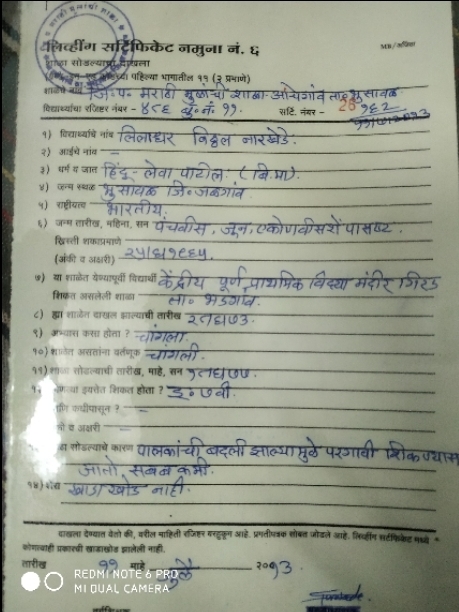 लिव्हींग सर्टिफिकेट नमुना नं. ६
MB/
शाळा सोडल्याचा दाखला
पहिल्या भागातील ११ (२ प्रमाणे)
शाळेचे नांव जि. प. मराठी मुलांची शाळा ता. भुसावळ
विद्यार्थ्याचा रजिष्टर नंबर - ४८६ बु. नं. ११. सर्टि. नंबर - 26 १६२
१) विद्यार्थ्याचे नांव लिलाधर विठ्ठल नारखेडे.
२) आईचे नाव —
३) धर्म व जात हिंदू - लेवा पाटील. (वि.मा)
४) जन्म स्थळ भुसावळ जि. जळगांव.
५) राष्ट्रीयत्व भारतीय.
६) जन्म तारीख, महिना, सन पंचवीस, जून, एकोणवीसशे पासष्ट.
ख्रिस्ती शकाप्रमाणे
(अंकी व अक्षरी) २५/६/१९६५
७) या शाळेत येण्यापूर्वी विद्यार्थी केंद्रीय पूर्ण प्राथमिक विद्या मंदीर गिरड
शिकत असलेली शाळा ता. भडगांव.
८) ह्या शाळेत दाखल झाल्याची तारीख
९) अभ्यास कसा होता ? चांगला.
१०) शाळेत असतांना वर्तणूक चांगली.
११) शाळा सोडल्याची तारीख, माहे, सन
इयत्तेत शिकत होता ? इ. ७वी.
कधीपासून ? —
व अक्षरी —
सोडल्याचे कारण पालकांची बदली झाल्यामुळे परगावी शिकण्यास
जातो, सबब कमी.
१४) शेरा खाडाखोड नाही.
दाखला देण्यात येतो की, वरील माहिती रजिष्टर वरहुकूम आहे. प्रगतीपत्रक सोबत जोडले आहे. लिव्हींग सर्टिफिकेट मध्ये
कोणत्याही प्रकारची खाडाखोड झालेली नाही.
तारीख ११ माहे जुलै २०१३
REDMI NOTE 6 PRO
MI DUAL CAMERA